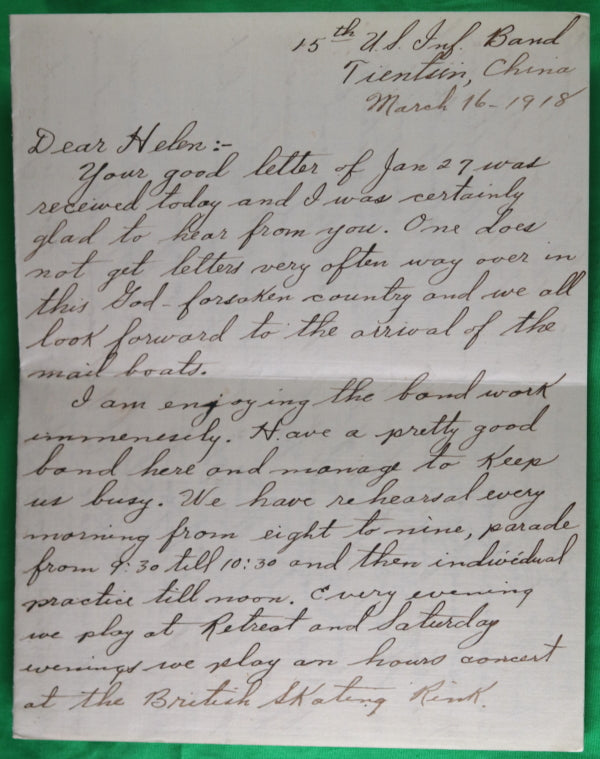 15th U.S. Inf. Band
Tientsin, China
March 16-1918
Dear Helen:-
Your good letter of Jan 27 was
received today and I was certainly
glad to hear from you. One does
not get letters very often way over in
this God-forsaken country and we all
look forward to the arrival of the
mail boats.
I am enjoying the band work
immenesily. Have a pretty good
band here and manage to keep
us busy. We have rehearsal every
morning from eight to nine, parade
from 9:30 till 10:30 and then individual
practice till noon. Every evening
we play at Retreat and Saturday
evenings we play an hours concert
at the British Skating Rink.